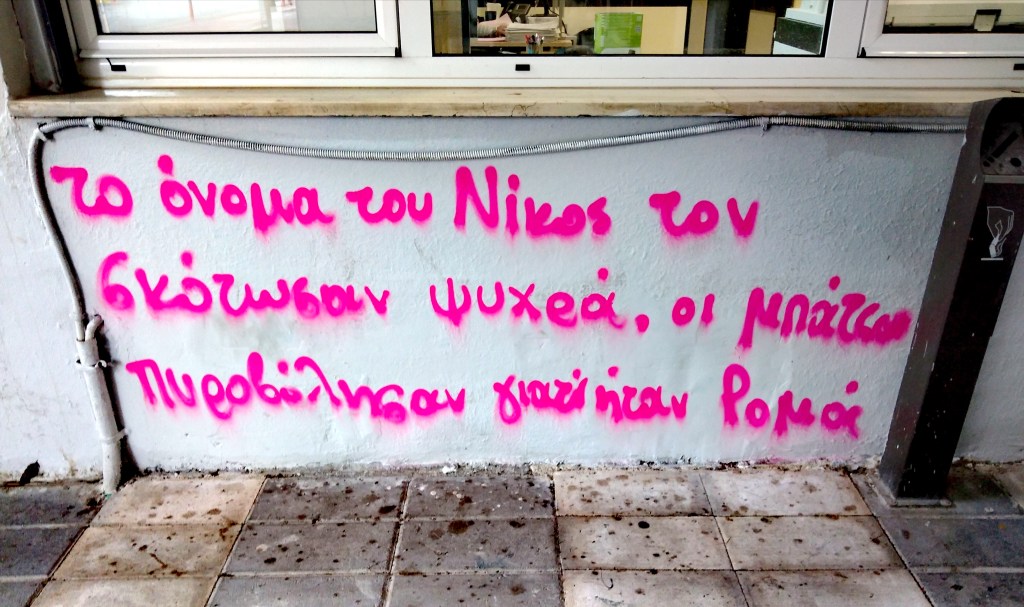 το όνομα του Νίκος τον
σκότωσαν ψυχρά, οι μπάτσοι
πυροβόλησαν γιατί ήταν Ρομά